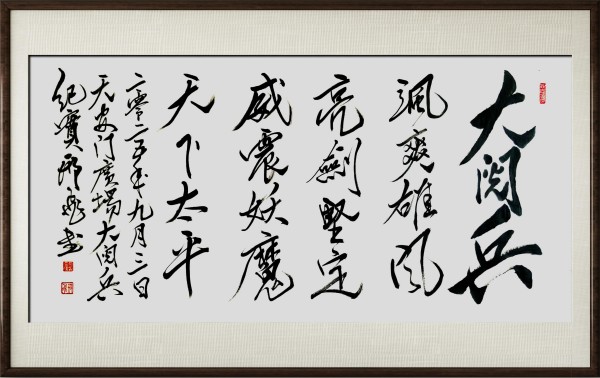 大阅兵
飒爽雄风
亮劍堅定
威震妖魔
天下太平
二零二五年九月三日
天安门廣場大阅兵
紀實邢书